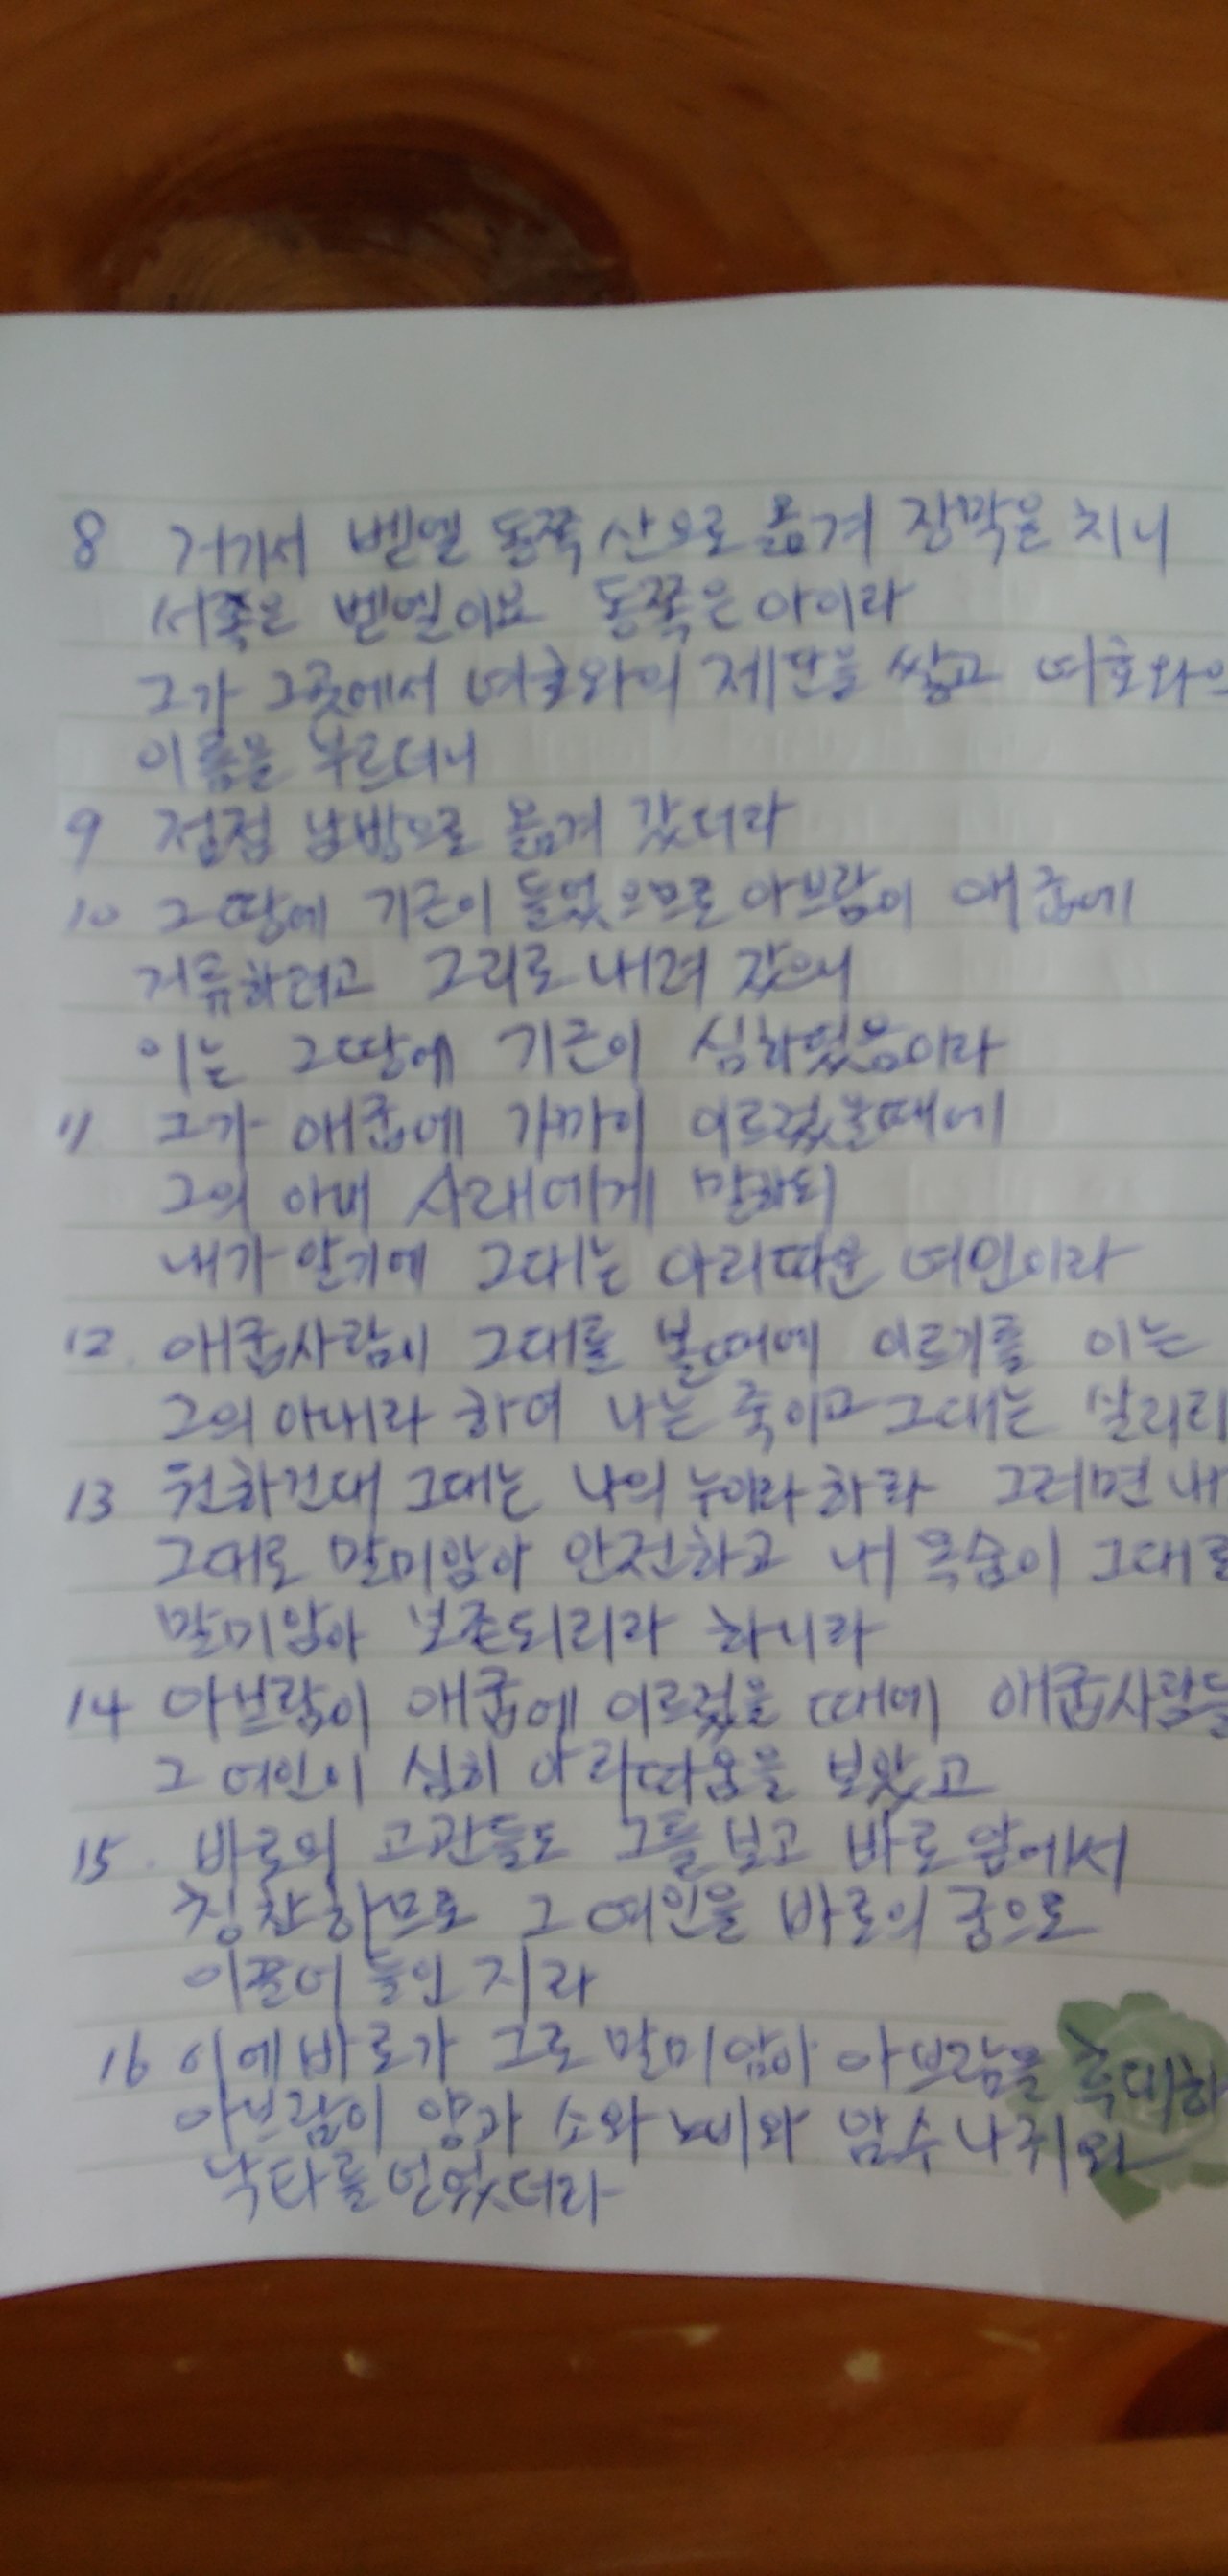 8 거기서 벧엘 동쪽 산으로 옮겨 장막을 치니
서쪽은 벧엘이요 동쪽은 아이라
그가 그곳에서 여호와의 제단을 쌓고 여호와의
이름을 부르더니
9 점점 남방으로 옮겨 갔더라
10 그땅에 기근이 들었으므로 아브람이 애굽에
거류하려고 그리로 내려 갔으니
이는 그땅에 기근이 심하였음이라
11 그가 애굽에 가까이 이르렀을때에
그의 아내 사래에게 말하되
내가 알기에 그대는 아리따운 여인이라
12. 애굽사람이 그대를 볼때에 이르기를 이는
그의 아내라 하여 나는 죽이고 그대는 살리리
13 원하건대 그대는 나의 누이라 하라 그러면 내
그대로 말미암아 안전하고 내 목숨이 그대로
말미암아 보존되리라 하니라
14 아브람이 애굽에 이르렀을 때에 애굽사람들
그 여인이 심히 아리따움을 보았고
15. 바로의 고관들도 그를 보고 바로 앞에서
칭찬하므로 그 여인을 바로의 궁으로
이끌어 들인 지라
16 이에 바로가 그로 말미암아 아브람을 후대하
아브람이 양과 소와 노비와 암수 나귀와
낙타를 얻었더라